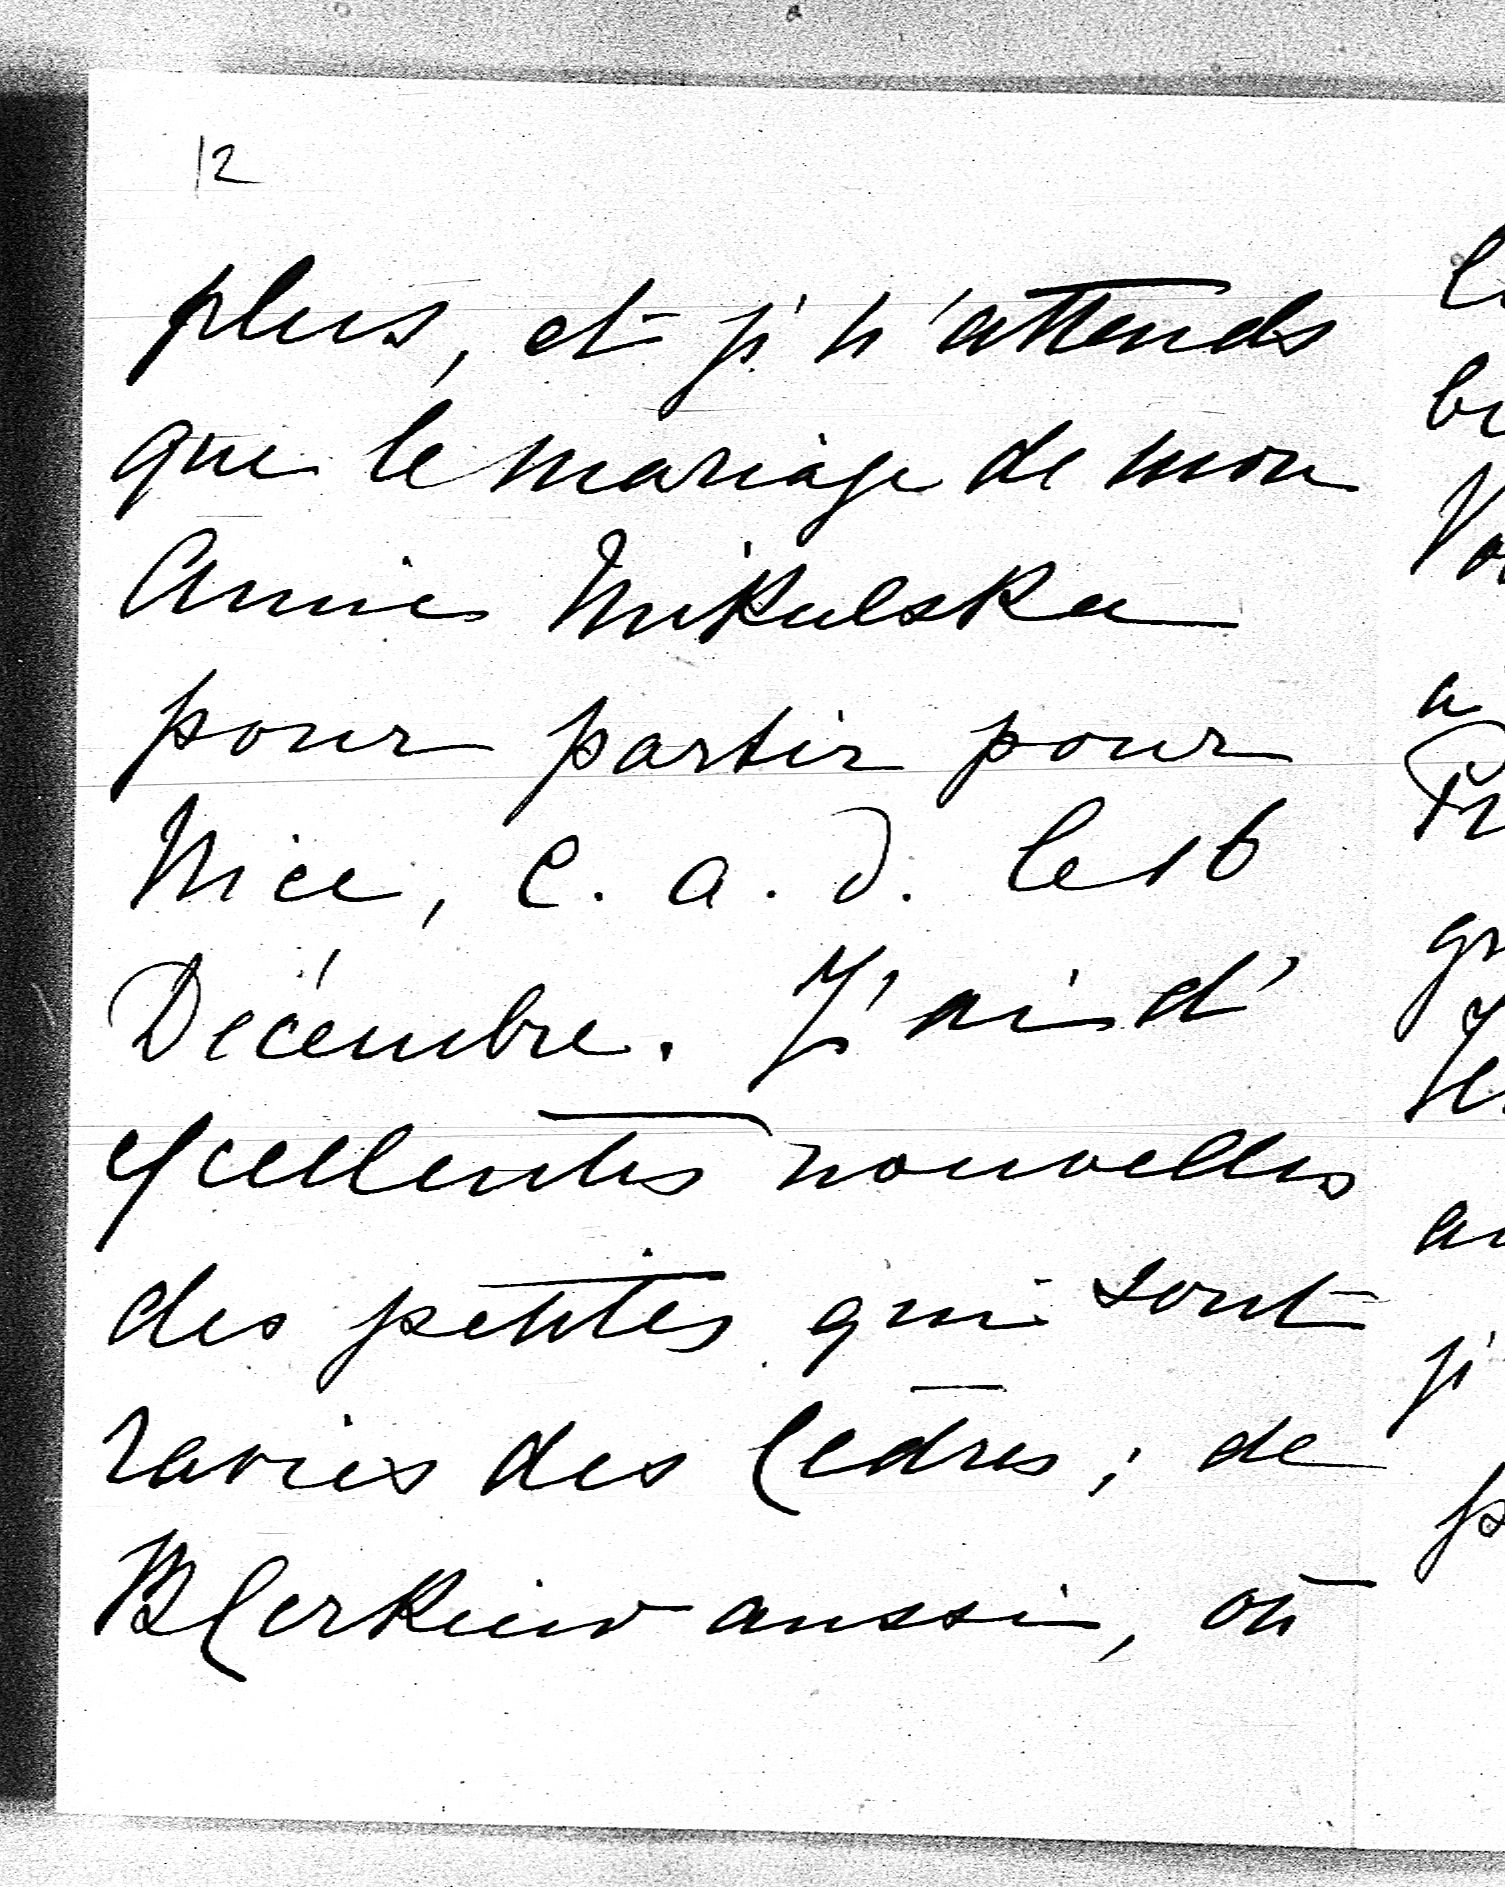 12
plus, et je n'attends
que le mariage de mon
Amie Mikulska
pour partir pour
Nice, c. a. d. le 16
Décembre. J'ai d'
excellentes nouvelles
des petites qui sont
ravies des Cèdres ; de
aussi, où